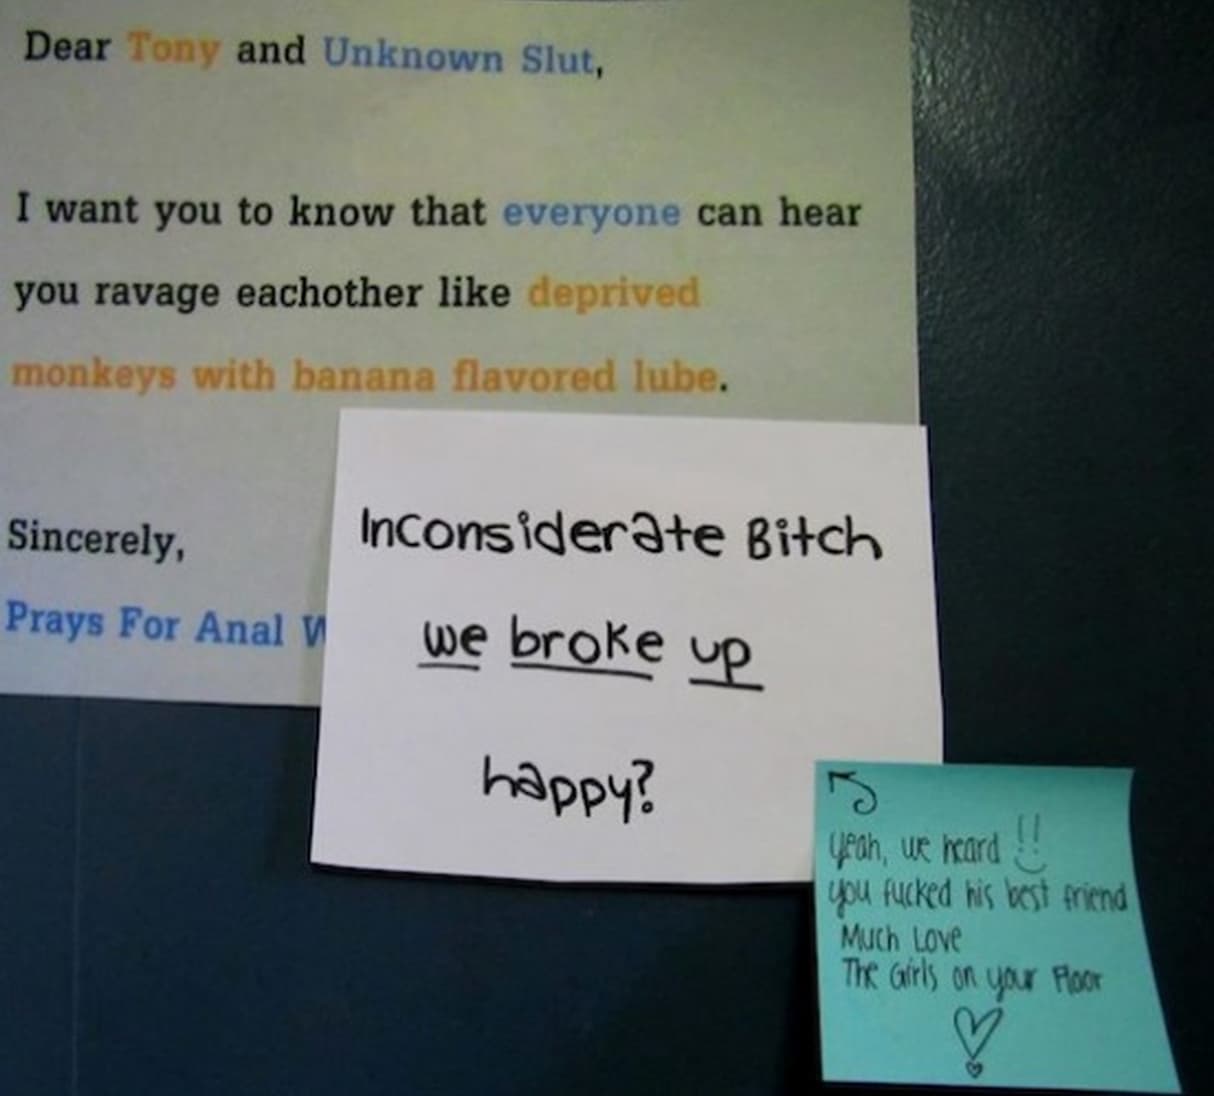 Dear Tony and Unknown Slut,
I want you to know that everyone can hear
you ravage eachother like deprived
monkeys with banana flavored lube.
Sincerely,
Prays For Anal
Inconsiderate Bitch
we broke up
happy?
yeah, we heard !!
you fucked his best friend
Much Love
The Girls on your Floor